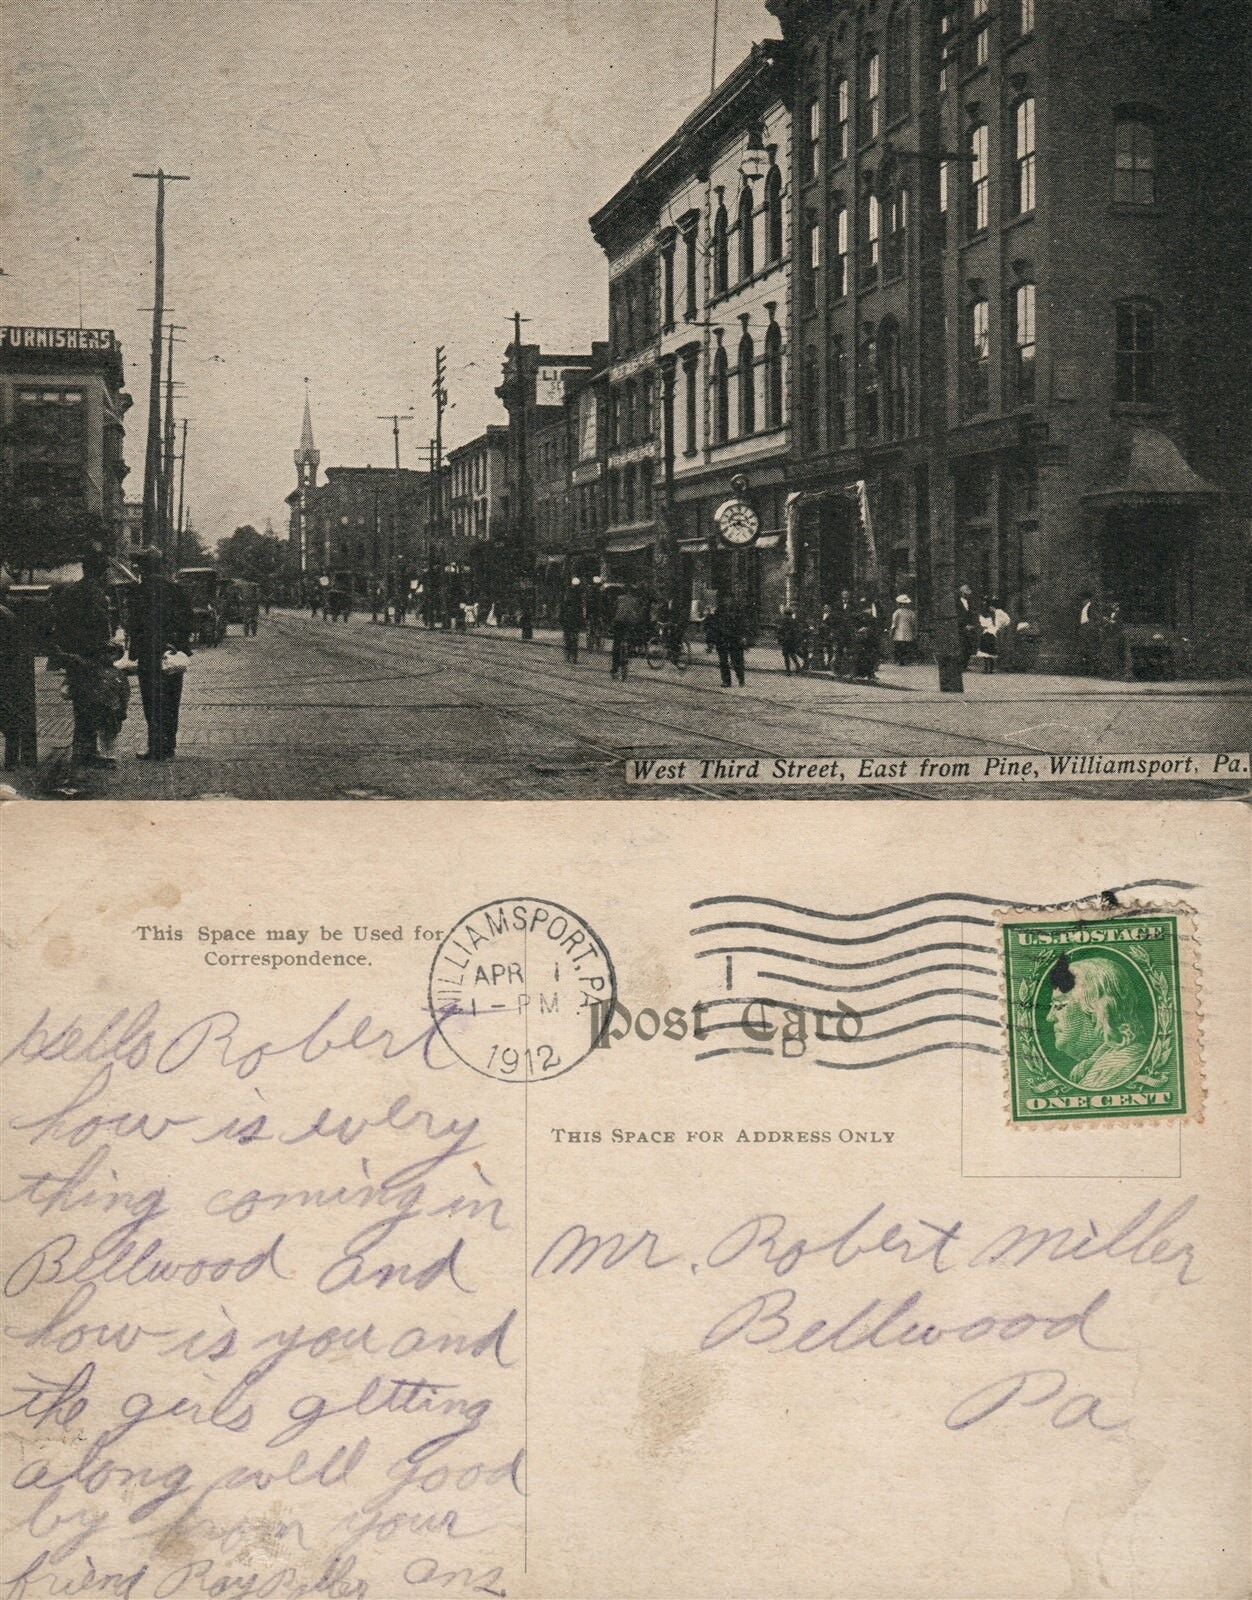 FURNISHERS
LI
West Third Street, East from Pine, Williamsport, Pa.
This Space may be Used for
Correspondence.
WILLIAMSPORT, PA.
APR 1
1-PM
1912
1
D
Post Card
U.S. POSTAGE
ONE CENT
THIS SPACE FOR ADDRESS ONLY
Hello Robert
how is every
thing coming in
Bellwood and
how is you and
the girls getting
along well good
by from your
friend Ray ans
Mr. Robert Miller
Bellwood
Pa